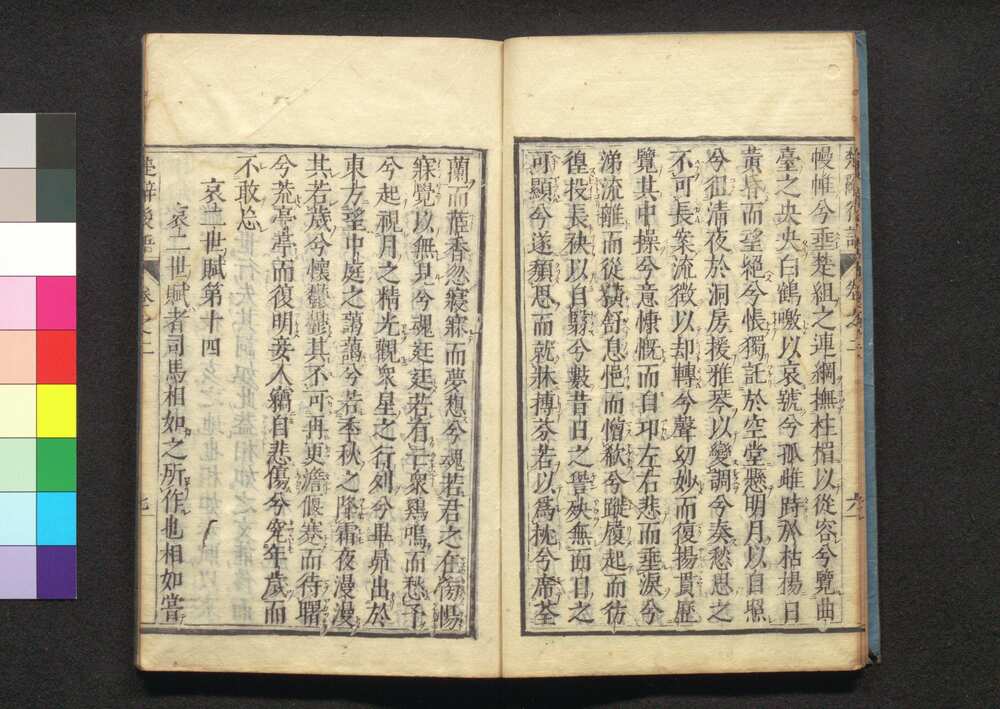 幔帷兮垂楚組之連綱撫柱楣以從容兮覽曲
臺之央央白鶴噭以哀號兮孤雌跱於枯楊日
黃昏而望絕兮悵獨託於空堂懸明月以自照
兮徂清夜於洞房援雅琴以變調兮奏愁思之
不可長案流徵以却轉兮聲幼妙而復揚貫歷
覽其中操兮意慷慨而自卬左右悲而垂淚兮
涕流離而從橫舒息悒而憎欷兮蹝履起而彷
徨投長袂以自翳兮數昔日之諐殃無面目之
可顯兮遂頽思而就牀摶芬若以爲枕兮席荃
蘭而茝香忽寢寐而夢想兮魂若君之在傍惕
寐覺以無見兮魂迋迋若有亡衆鷄鳴而愁予
兮起視月之精光觀衆星之行列兮畢昴出於
東方望中庭之藹藹兮若季秋之降霜夜漫漫
其若歲兮懷鬱鬱其不可再更澹偃蹇而待曙
兮荒亭亭而復明妾人竊自悲傷兮究年歲而
不敢忘
哀二世賦第十四
哀二世賦者司馬相如之所作也相如嘗
楚辭後語
卷之二
七